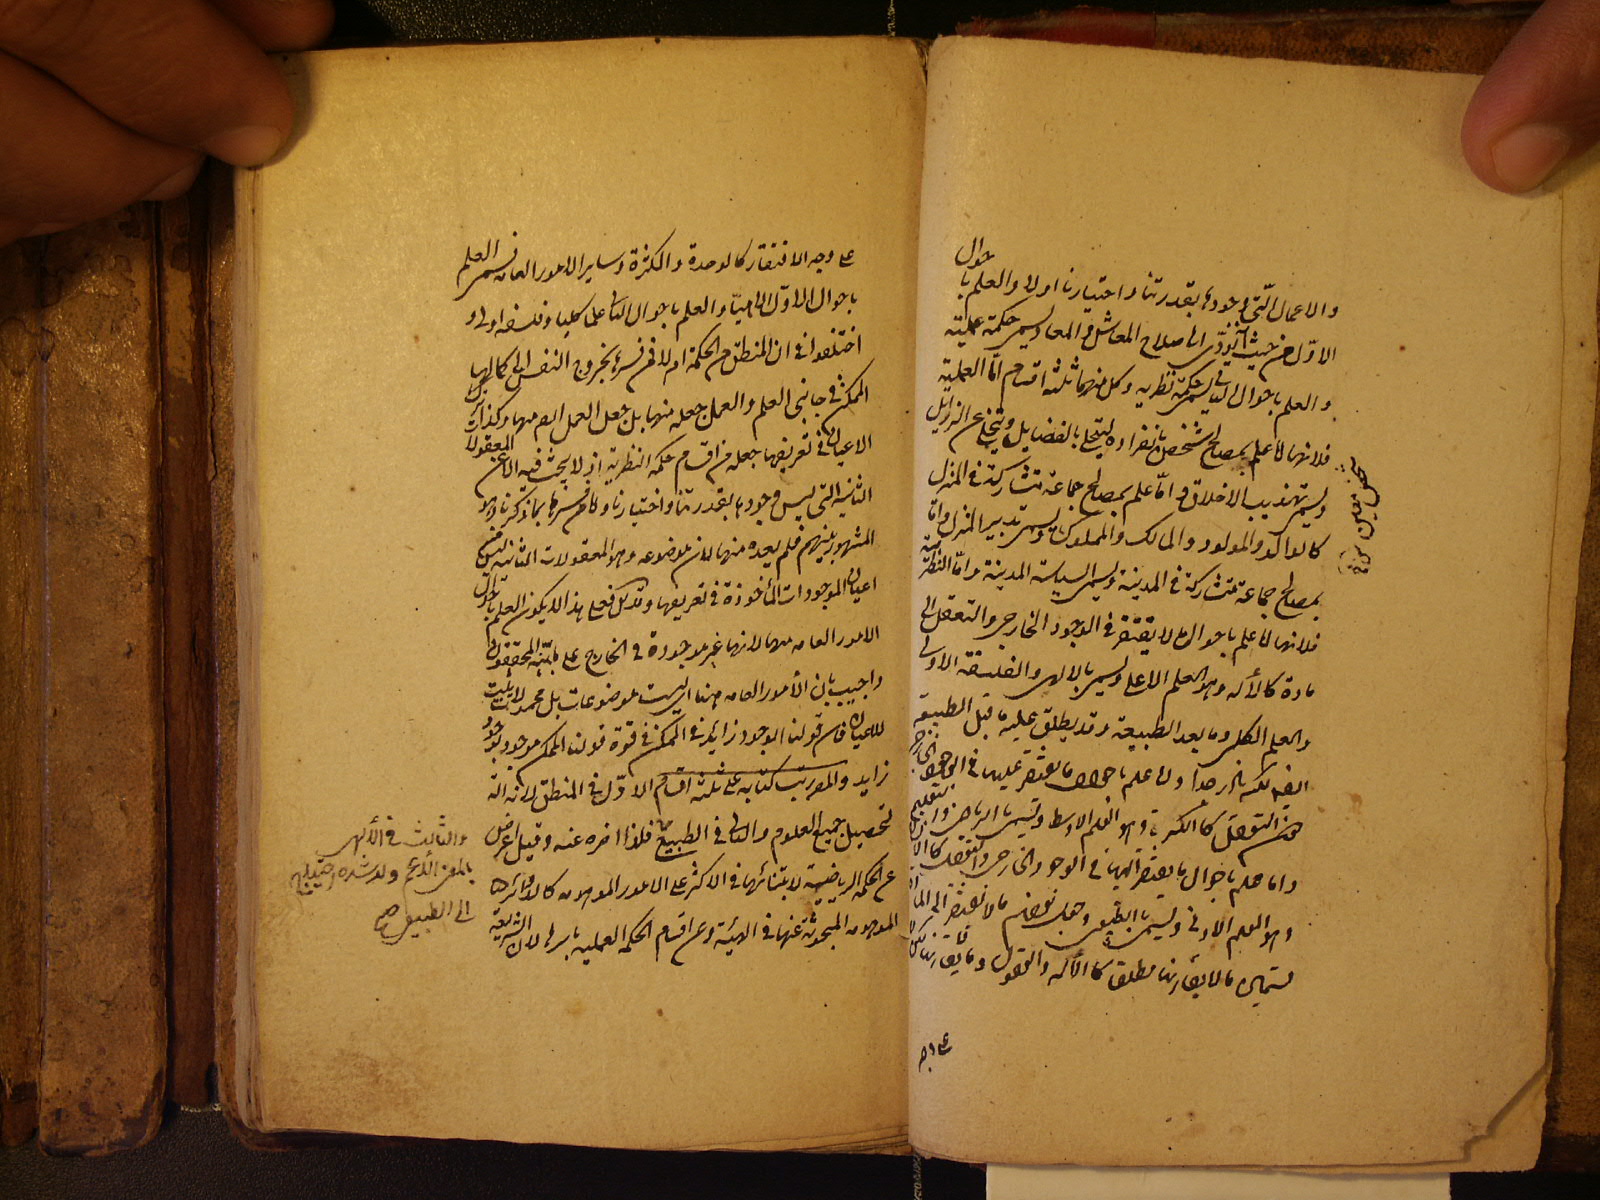 والاعمال التي وجودها بقدرتنا واختيارنا اولا والعلم باحوال
الاول من حيث انه يؤدى الى صلاح المعاش والمعاد يسمى حكمة عملية
والعلم باحوال الثانى يسمى حكمة نظرية وكل منهما ثلثة اقسام اما العملية
فلانها اما علم بمصالح شخص بانفراده ليتحلى بالفضايل ويتخلى عن الرذايل
ويسمى تهذيب الاخلاق واما علم بمصالح جماعة متشاركة فى المنزل
كالوالد والمولود والمالك والمملوك ويسمى تدبير المنزل واما
بمصالح جماعة متشاركة فى المدينة ويسمى السياسة المدينة واما النظرية
فلانها اما علم باحوال ما لا يفتقر فى الوجود الخارجى والتعقل الى
مادة كالاله وهو العلم الاعلى ويسمى بالالهى والفلسفة الاولى
والعلم الكلى وما بعد الطبيعة وقد يطلق عليه ما قبل الطبيعة
ايضا لكنه نادر جدا واما علم باحوال ما يفتقر عليها فى الوجود الخارجى
دون التعقل كالكرة وهو العلم الاوسط ويسمى بالرياضى والتعليمى
واما علم باحوال ما يفتقر اليها فى الوجود الخارجى والتعقل كالانسان
وهو العلم الادنى ويسمى بالطبيعى وجعل بعضهم ما لا يفتقر الى المادة
قسمين ما لا يقارنها مطلقا كالاله والعقول وما يقارنها لكن لا
على وجه
على وجه الافتقار كالوحدة والكثرة وساير الامور العامة فيسمى العلم
باحوال الاول الهيا والعلم باحوال الثانى علما كليا وفلسفة اولى و
اختلفوا فى ان المنطق من الحكمة ام لا فمن فسرها بخروج النفس الى كمالها
الممكن فى جانبى العلم والعمل جعله منها بل جعل العمل ايضا منها وكذا من ترك
الاعيان فى تعريفها جعله من اقسام حكمة النظرية اذ لا يبحث فيه الا عن المعقولات
الثانية التى ليس وجودها بقدرتنا واختيارنا واما من فسرها بما ذكرنا وهو
المشهور بينهم فلم يعده منها لان موضوعه وهو المعقولات الثانية ليس من
اعيان الموجودات المأخوذة فى تعريفها وقد يقال فعلى هذا لا يكون العلم باحوال
الامور العامة منها لانها غير موجودة فى الخارج على ما بينه المحققون
واجيب بان الامور العامة ههنا ليست موضوعات بل محمولات تثبت
للاعيان فان قولنا الوجود زايد فى الممكن فى قوة قولنا الممكن موجود بوجود
زايد والمص رتب كتابه على ثلثة اقسام الاول فى المنطق لانه آلة
لتحصيل جميع العلوم والثانى فى الطبيعى فلذا اخره عنه وقيل اعرض
عن الحكمة الرياضية لابتنائها فى الاكثر على الامور الموهومة كالدوائر
الموهومة المبحوثة عنها فى الهيئة وعن اقسام الحكمة العملية باسرها لان الشريعة
والثالث فى الالهى
بالمعنى الاعم ولشدة احتياجه
الى الطبيعى صح